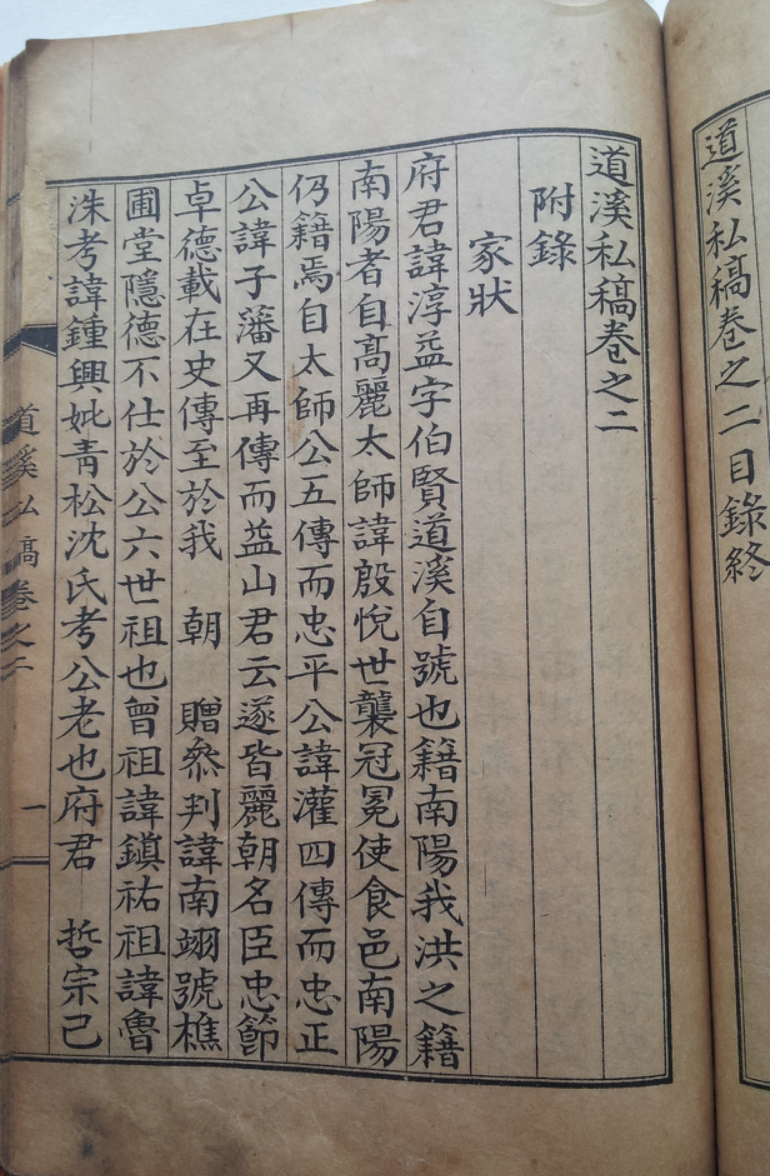 道溪私稿卷之二目錄終
道溪私稿卷之二
附錄
家狀
府君諱淳益字伯賢道溪自號也籍南陽我洪之籍
南陽者自高麗太師諱殷悅世襲冠冕使食邑南陽
仍籍焉自太師公五傳而忠平公諱灌四傳而忠正
公諱子藩又再傳而益山君云遂皆麗朝名臣忠節
卓德載在史傳至於我 朝 贈叅判諱南翊號樵
圃堂隱德不仕於公六世祖也曾祖諱鎭祐祖諱魯
洙考諱鍾興妣靑松沈氏考公老也府君 哲宗己
道溪私稿卷之二
一